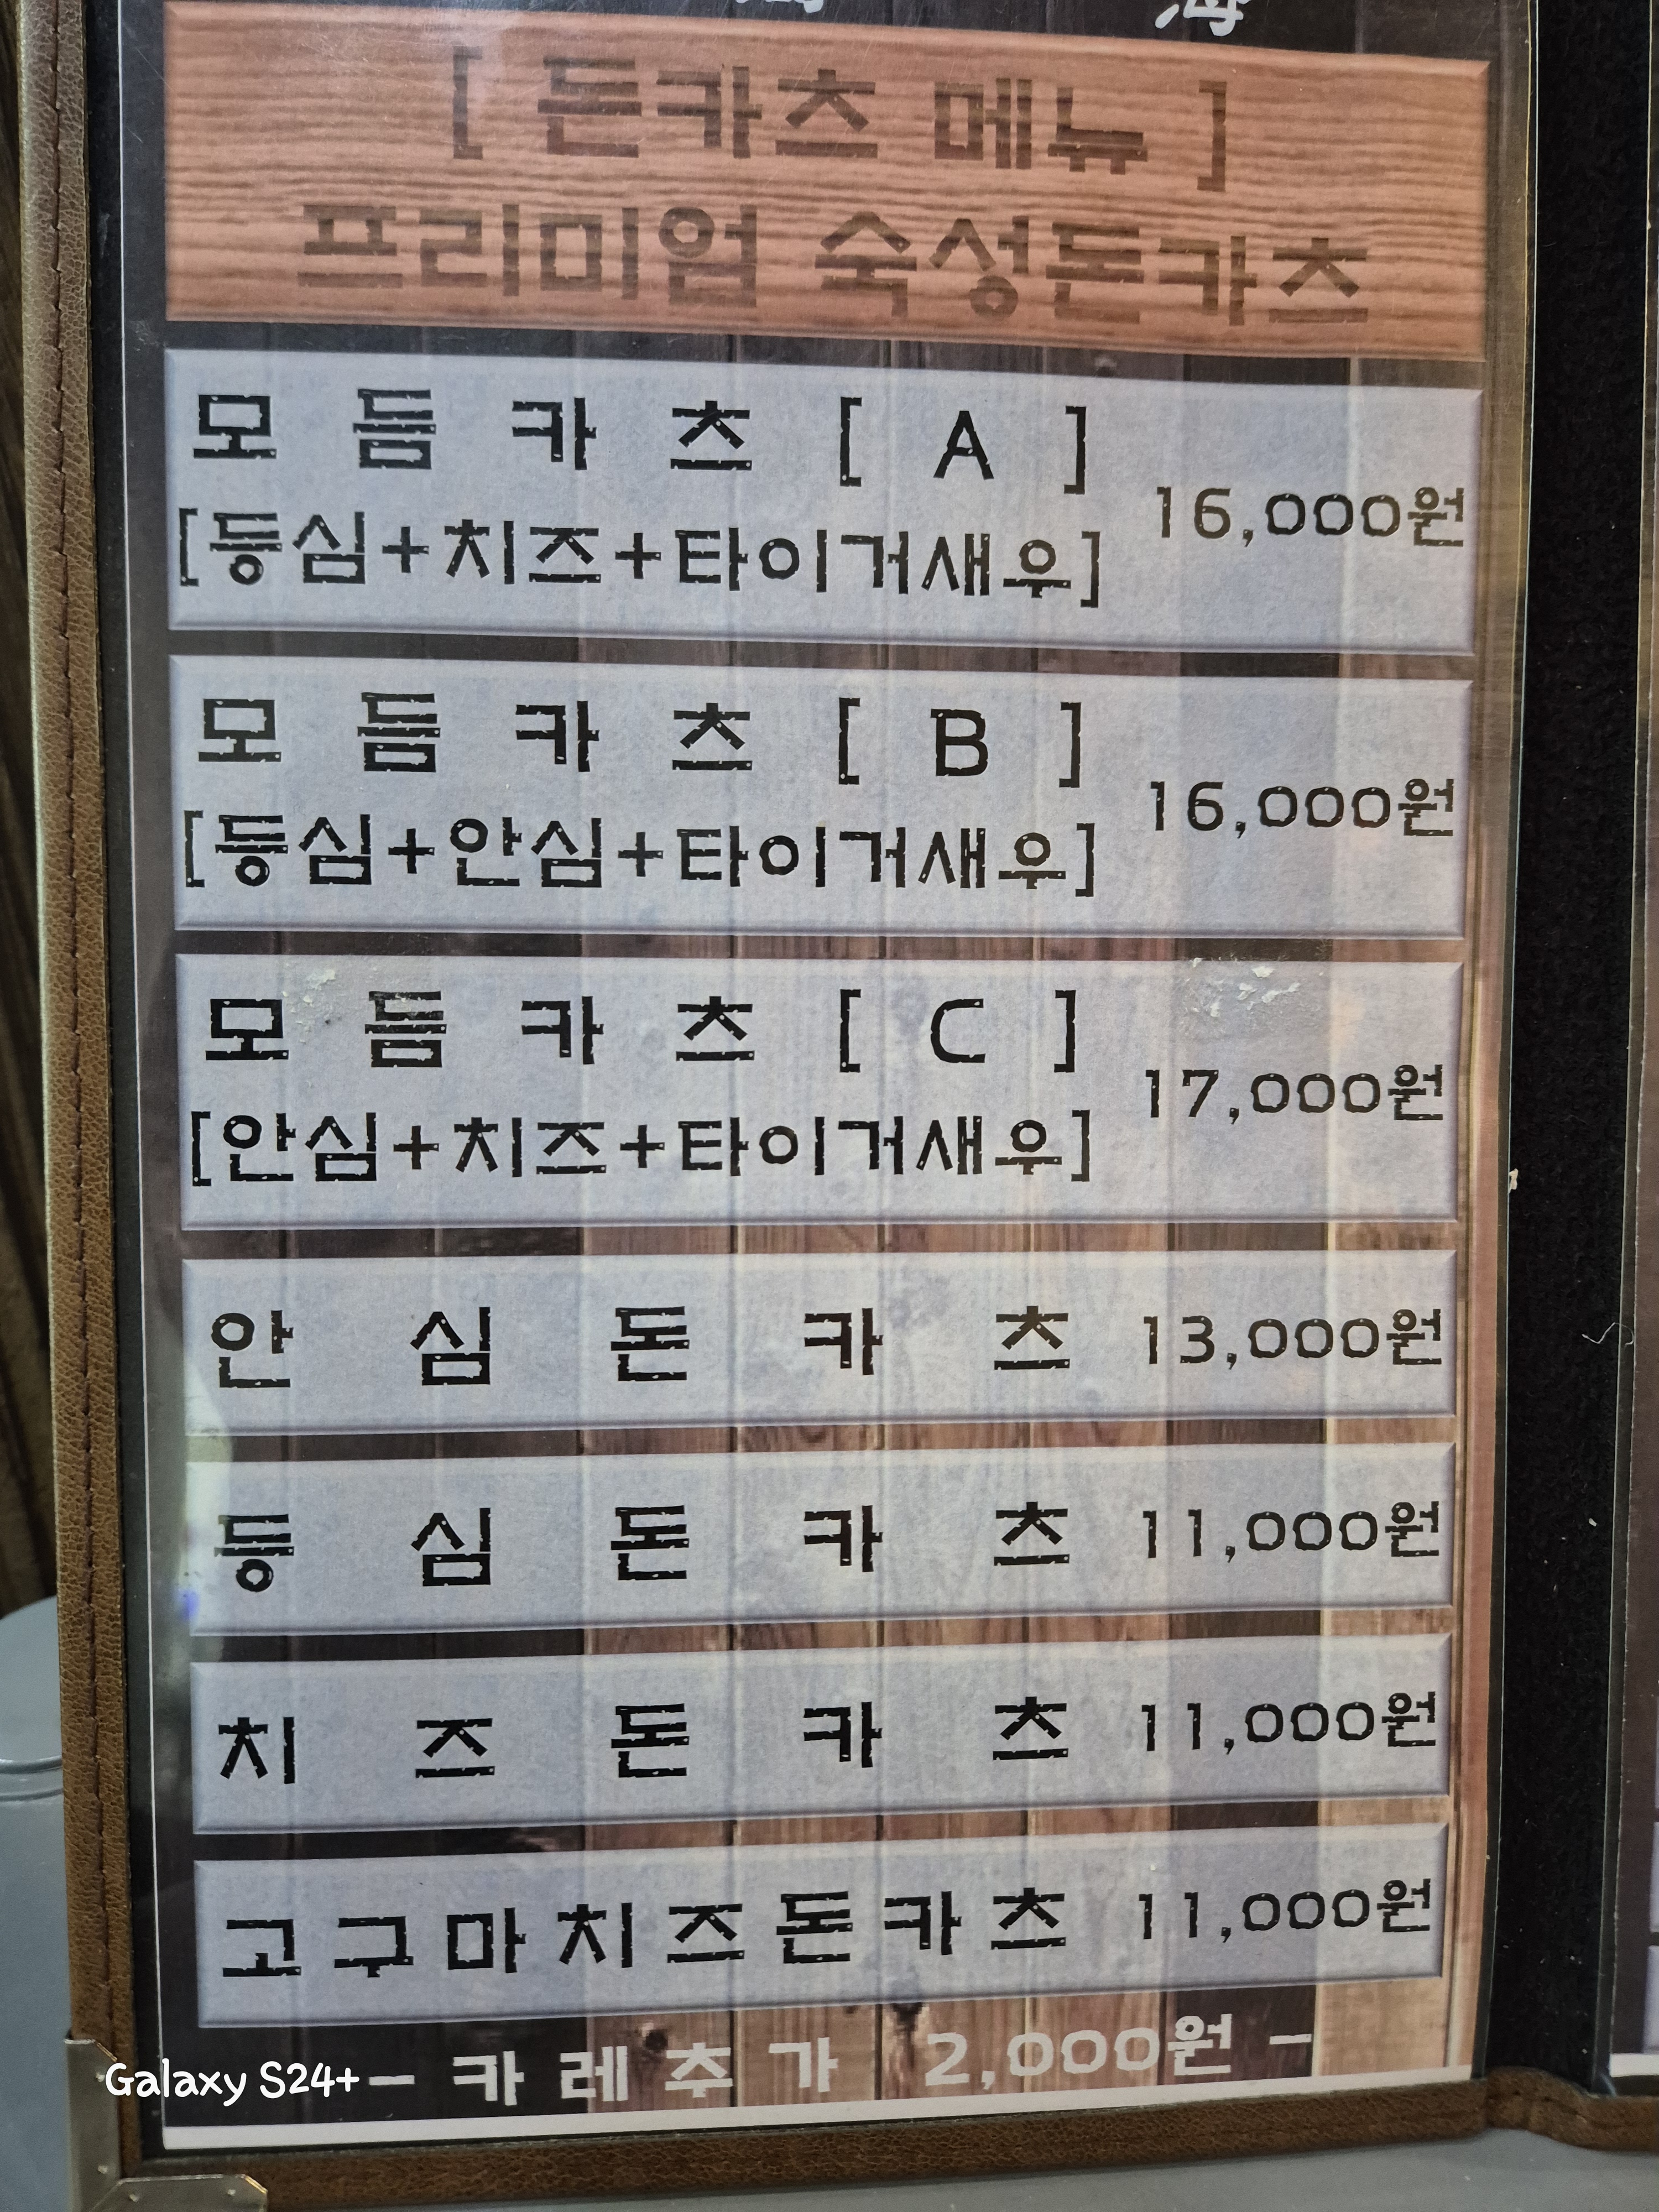 海
[ 돈카츠 메뉴 ]
프리미엄 숙성돈카츠
모듬카츠 [ A ]
[등심+치즈+타이거새우]
16,000원
모듬카츠 [ B ]
[등심+안심+타이거새우]
16,000원
모듬카츠 [ C ]
[안심+치즈+타이거새우]
17,000원
안심돈카츠 13,000원
등심돈카츠 11,000원
치즈돈카츠 11,000원
고구마치즈돈카츠 11,000원
- 카레추가 2,000원 -
Galaxy S24+